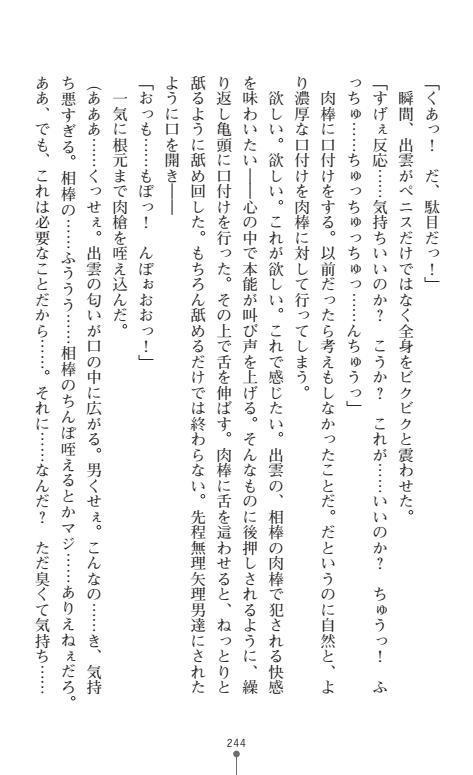 「くあっ！　だ、駄目だっ！」
　瞬間、出雲がペニスだけではなく全身をビクビクと震わせた。
「すげぇ反応……気持ちいいのか？　こうか？　これが……いいのか？　ちゅうっ！　ふ
っちゅ……ちゅっちゅっちゅっ……んちゅうっ」
　肉棒に口付けをする。以前だったら考えもしなかったことだ。だというのに自然と、よ
り濃厚な口付けを肉棒に対して行ってしまう。
　欲しい。欲しい。これが欲しい。これで感じたい。出雲の、相棒の肉棒で犯される快感
を味わいたい――心の中で本能が叫び声を上げる。そんなものに後押しされるように、繰
り返し亀頭に口付けを行った。その上で舌を伸ばす。肉棒に舌を這わせると、ねっとりと
舐るように舐め回した。もちろん舐めるだけでは終わらない。先程無理矢理男達にされた
ように口を開き――
「おっも……もぽっ！　んぽぉおおっ！」
　一気に根元まで肉槍を咥え込んだ。
（あああ……くっせぇ。出雲の匂いが口の中に広がる。男くせぇ。こんなの……き、気持
ち悪すぎる。相棒の……ふううう……相棒のちんぽ咥えるとかマジ……ありえねぇだろ。
ああ、でも、これは必要なことだから……。それに……なんだ？　ただ臭くて気持ち……
244